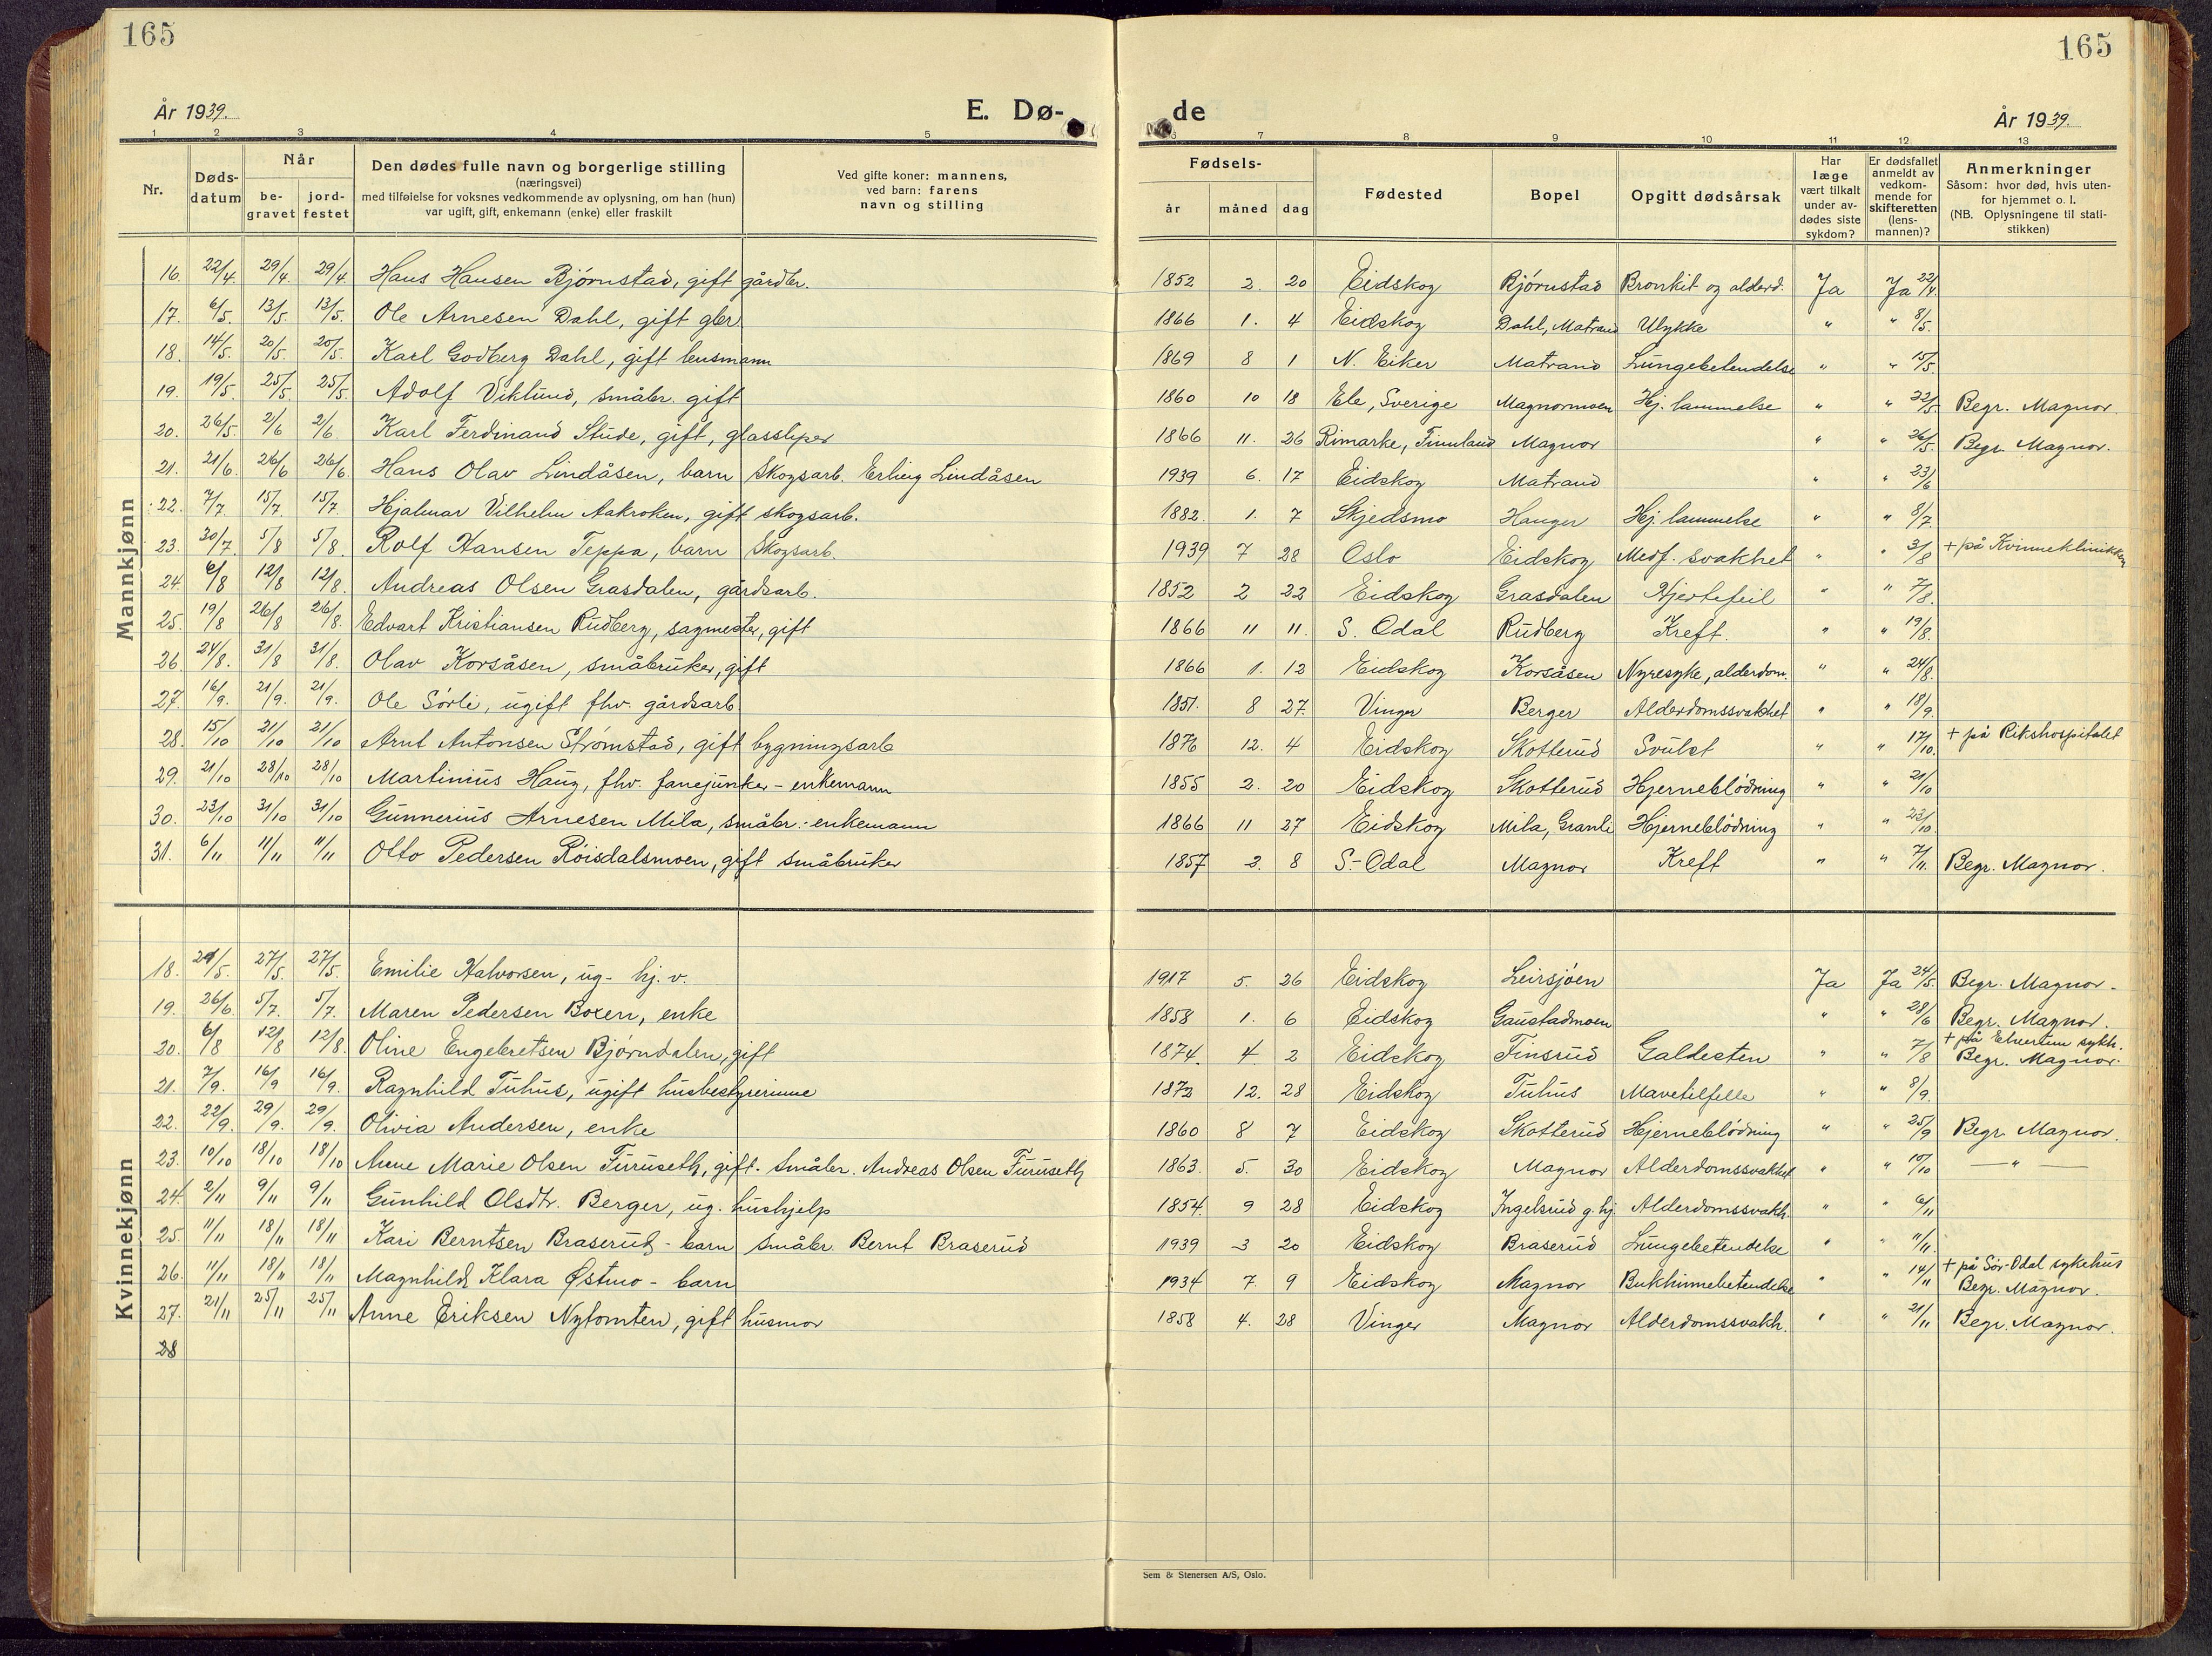 165
165
År 1939.
E. Dø-
de
År 1939.
1 2 3 4 5
6 7 8 9 10 11 12 13
Nr.
Døds-
datum
Når
be-
gravet
jord-
festet
Den dødes fulle navn og borgerlige stilling
(næringsvei)
med tilføielse for voksnes vedkommende av oplysning, om han (hun)
var ugift, gift, enkemann (enke) eller fraskilt
Ved gifte koner: mannens,
ved barn: farens
navn og stilling
Fødsels-
år
måned
dag
Fødested
Bopel
Opgitt dødsårsak
Har
læge
vært tilkalt
under av-
dødes siste
sykdom?
Er dødsfallet
anmeldt av
vedkom-
mende for
skifteretten
(lens-
mannen)?
Anmerkninger
Såsom: hvor død, hvis uten-
for hjemmet o. l.
(NB. Oplysningene til stati-
stikken)
Mannkjønn
16. 22/4 29/4. 29/4. Hans Hansen Bjørnstad, gift gårdbr. 1852 2. 20 Eidskog Bjørnstad Bronkit og alderd. Ja Ja 22/4.
17. 6/5. 13/5. 13/5. Ole Arnesen Dahl, gift gbr. 1866 1. 4 Eidskog Dahl, Matrand Ulykke " " 8/5.
18. 14/5. 20/5. 20/5. Karl Godberg Dahl, gift lensmann 1869 8 1 N. Eiker Matrand Lungebetendelse " " 15/5.
19. 19/5. 25/5. 25/5. Adolf Viklund, småbr. gift 1860 10 18 Ele, Sverige Magnormoen Hj. lammelse " " 22/5 Begr. Magnor.
20. 26/5. 2/6 2/6 Karl Ferdinand Stude, gift, glassliper 1866 11. 26 Rimarke, Finnland Magnor " " 26/5. Begr. Magnor.
21. 21/6. 26/6 26/6. Hans Olav Lindåsen, barn Skogsarb. Erling Lindåsen 1939 6. 17 Eidskog Matrand " " 23/6
22. 7/7 15/7. 15/7. Hjalmar Vilhelm Aakroken, gift skogsarb. 1882. 1. 7 Skjedsmo Hanger Hj. lammelse " " 8/7.
23. 30/7. 5/8 5/8. Rolf Hansen Teppa, barn Skogsarb. 1939 7 28 Oslo Eidskog Medf. svakhet " " 3/8 + på Kvinneklinikken
24. 6/8 12/8 12/8. Andreas Olsen Grasdalen, gårdsarb. 1852 2 22 Eidskog Grasdalen Hjertefeil " " 7/8.
25. 19/8 26/8 26/8. Edvart Kristiansen Rudberg, sagmester, gift 1866 11 11. S. Odal Rudberg Kreft. " " 19/8.
26. 24/8. 31/8 31/8. Olav Korsåsen, småbruker, gift 1866 1. 12 Eidskog Korsåsen Nyresyke, alderdom. " " 24/8.
27. 16/9. 21/9. 21/9. Ole Sørli, ugift fhv. gårdsarb. 1851. 8 27. Vinger Berger Alderdomssvakhet " " 18/9.
28. 15/10 21/10 21/10 Arnt Antonsen Strømstad, gift bygningsarb 1876 12. 4 Eidskog Skotterud Svulst " " 17/10. + på Rikshospitalet
29. 21/10 28/10 28/10 Martinius Haug, fhv. fanejunker - enkemann 1855 2. 20 Eidskog Skotterud Hjerneblødning " " 21/10
30. 23/10 31/10 31/10 Gunnerius Arnesen Mila, småbr. - enkemann 1866 11 27 Eidskog Mila, Granli Hjerneblødning " " 23/10.
31. 6/11 11/11 11/11 Otto Pedersen Röisdalsmoen, gift småbruker 1857 2. 8 S-Odal Magnor Kreft " " 7/11. Begr. Magnor.
Kvinnekjønn
18. 24/5. 27/5. 27/5. Emilie Halvorsen, ug- hj. v. 1917 5. 26 Eidskog Leirsjøen Ja Ja 24/5 Begr. Magnor.
19. 26/6 5/7. 5/7. Maren Pedersen Boxen, enke 1858 1. 6 Eidskog Gaustadmoen " " 28/6 Begr. Magnor.
20. 6/8 12/8 12/8. Oline Engebretsen Bjørndalen, gift 1874. 4. 2 Eidskog Finsrud Galdesten " " 7/8 + på Elverum sykh. Begr. Magnor.
21. 7/9. 16/9 16/9. Ragnhild Tuhus, ugift husbestyrerinne 1872 12. 28 Eidskog Tuhus Mavetilfelle " " 8/9.
22. 22/9. 29/9. 29/9. Olivia Andersen, enke 1860 8 7 Eidskog Skotterud Hjerneblødning " " 25/9 Begr. Magnor.
23. 10/10 18/10 18/10 Anne Marie Olsen Furuseth, gift. Småbr. Andreas Olsen Furuseth 1863. 5. 30 Eidskog Magnor Alderdomssvakhet " " 10/10 — " —
24. 2/11 9/11 9/11 Gunhild Olsdtr. Berger, ug. hushjelp 1854. 9 28 Eidskog Ingelsrud g. hj. Alderdomssvakh. " " 6/11
25. 11/11 18/11 18/11 Kari Berntsen Braserud - barn småbr. Bernt Braserud 1939 3 20 Eidskog Braserud Lungebetendelse " " 11/11.
26. 11/11 18/11 18/11 Magnhild Klara Østmo - barn 1934 7. 9 Eidskog Magnor Bukhinnebetendelse " " 14/11 + på Sør-Odal sykehus Begr. Magnor.
27. 21/11 25/11 25/11 Anne Eriksen Nytomten, gift husmor 1858 4. 28 Vinger Magnor Alderdomssvakh. " " 21/11 Begr. Magnor.
28
Sem & Stenersen A/S, Oslo.